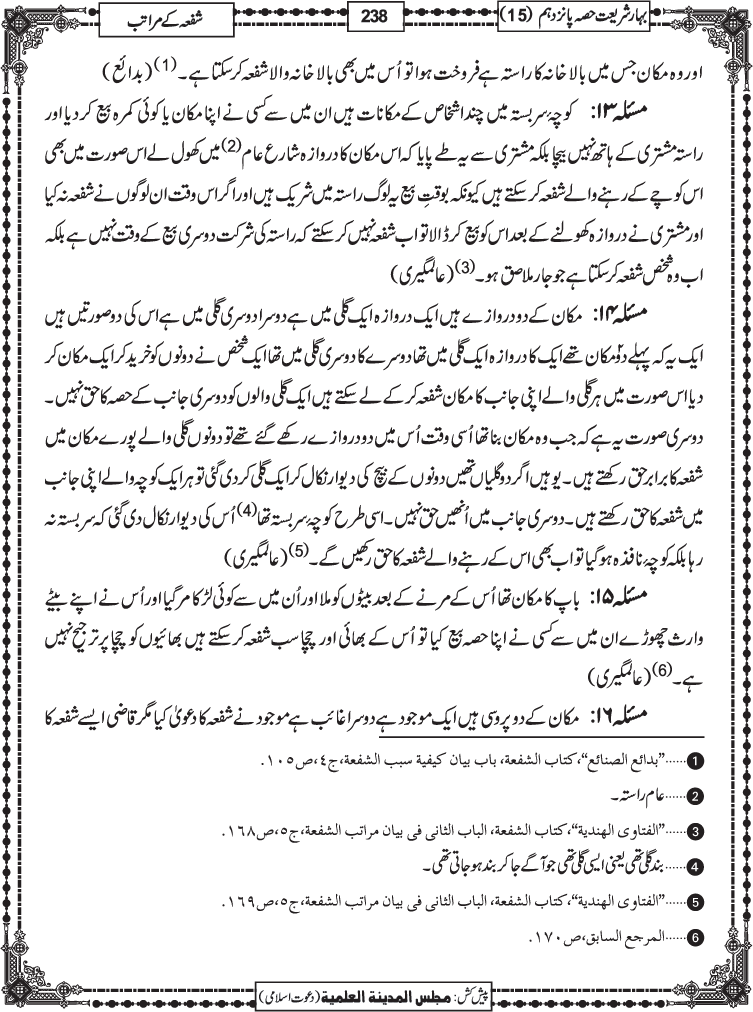 بہار شریعت حصہ پانزدہم (15)
238
شفعہ کے مراتب
اور وہ مکان جس میں بالا خانہ کا راستہ ہے فروخت ہوا تو اُس میں بھی بالا خانہ والا شفعہ کرسکتا ہے۔(1) (بدائع)
مسئلہ ۱۳: کوچۂ سربستہ میں چند اشخاص کے مکانات ہیں ان میں سے کسی نے اپنا مکان یا کوئی کمرہ بیع کردیا اور
راستہ مشتری کے ہاتھ نہیں بیچا بلکہ مشتری سے یہ طے پایا کہ اس مکان کا دروازہ شارع عام(2) میں کھول لے اس صورت میں بھی
اس کوچے کے رہنے والے شفعہ کرسکتے ہیں کیونکہ بوقتِ بیع یہ لوگ راستہ میں شریک ہیں اور اگر اس وقت ان لوگوں نے شفعہ نہ کیا
اور مشتری نے دروازہ کھولنے کے بعد اس کو بیع کرڈالا تو اب شفعہ نہیں کرسکتے کہ راستہ کی شرکت دوسری بیع کے وقت نہیں ہے بلکہ
اب وہ شخص شفعہ کرسکتا ہے جو جار ملاصق ہو۔(3) (عالمگیری)
مسئلہ ۱۴: مکان کے دو دروازے ہیں ایک دروازہ ایک گلی میں ہے دوسرا دوسری گلی میں ہے اس کی دو صورتیں ہیں
ایک یہ کہ پہلے دو۲ مکان تھے ایک کا دروازہ ایک گلی میں تھا دوسرے کا دوسری گلی میں تھا ایک شخص نے دونوں کو خرید کر ایک مکان کر
دیا اس صورت میں ہر گلی والے اپنی جانب کا مکان شفعہ کرکے لے سکتے ہیں ایک گلی والوں کو دوسری جانب کے حصہ کا حق نہیں۔
دوسری صورت یہ ہے کہ جب وہ مکان بنا تھا اُسی وقت اُس میں دو دروازے رکھے گئے تھے تو دونوں گلی والے پورے مکان میں
شفعہ کا برابر حق رکھتے ہیں۔ یوہیں اگر دو گلیاں تھیں دونوں کے بیچ کی دیوار نکال کر ایک گلی کردی گئی تو ہر ایک کوچہ والے اپنی جانب
میں شفعہ کا حق رکھتے ہیں۔ دوسری جانب میں اُنھیں حق نہیں۔ اسی طرح کوچۂ سربستہ تھا(4) اُس کی دیوار نکال دی گئی کہ سربستہ نہ
رہا بلکہ کوچۂ نافذہ ہوگیا تو اب بھی اس کے رہنے والے شفعہ کا حق رکھیں گے۔(5) (عالمگیری)
مسئلہ ۱۵: باپ کا مکان تھا اُس کے مرنے کے بعد بیٹوں کو ملا اور اُن میں سے کوئی لڑکا مرگیا اور اُس نے اپنے بیٹے
وارث چھوڑے ان میں سے کسی نے اپنا حصہ بیع کیا تو اُس کے بھائی اور چچا سب شفعہ کرسکتے ہیں بھائیوں کو چچا پر ترجیح نہیں
ہے۔(6) (عالمگیری)
مسئلہ ۱۶: مکان کے دو پروسی ہیں ایک موجود ہے دوسرا غائب ہے موجود نے شفعہ کا دعویٰ کیا مگر قاضی ایسے شفعہ کا
1 ......”بدائع الصنائع“،کتاب الشفعة، باب بیان کیفیة سبب الشفعة،ج٤،ص١٠٥.
2 ......عام راستہ۔
3 ......”الفتاوی الهندية“،کتاب الشفعة، الباب الثانی فی بیان مراتب الشفعة،ج٥،ص١٦٨.
4 ......بند گلی تھی یعنی ایسی گلی تھی جو آگے جا کر بند ہوجاتی تھی۔
5 ......”الفتاوی الهندية“،کتاب الشفعة، الباب الثانی فی بیان مراتب الشفعة،ج٥،ص١٦٩.
6 ......المرجع السابق،ص١٧٠.
پیش کش: مجلس المدینة العلمیة (دعوت اسلامی)